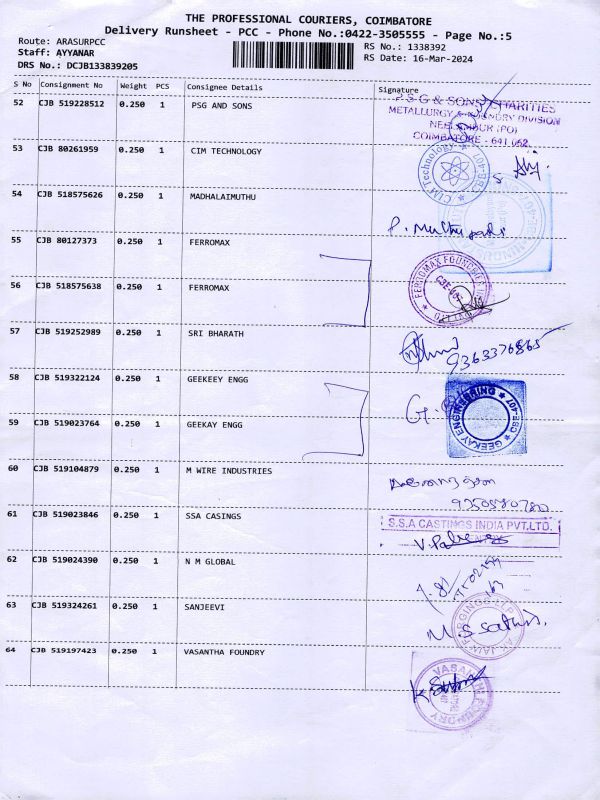 THE PROFESSIONAL COURIERS, COIMBATORE
Delivery Runsheet - PCC - Phone No.:0422-3505555 - Page No.:5
Route: ARASURPCC
Staff: AYYANAR
DRS No.: DCJB133839205
RS No.: 1338392
RS Date: 16-Mar-2024
S No Consignment No Weight PCS Consignee Details Signature
52 CJB 519228512 0.250 1 PSG AND SONS
P.S.G & SONS CHARITIES
METALLURGY & FOUNDRY DIVISION
NEELAMBUR (PO)
COIMBATORE - 641 062.
53 CJB 80261959 0.250 1 CIM TECHNOLOGY
CIM Technology
54 CJB 518575626 0.250 1 MADHALAIMUTHU
55 CJB 80127373 0.250 1 FERROMAX
56 CJB 518575638 0.250 1 FERROMAX
FERROMAX
57 CJB 519252989 0.250 1 SRI BHARATH
9363376865
58 CJB 519322124 0.250 1 GEEKEEY ENGG
GEEKAY ENGINEERING
59 CJB 519023764 0.250 1 GEEKAY ENGG
60 CJB 519104879 0.250 1 M WIRE INDUSTRIES
61 CJB 519023846 0.250 1 SSA CASINGS
S.S.A CASTINGS INDIA PVT.LTD.
62 CJB 519024390 0.250 1 N M GLOBAL
63 CJB 519324261 0.250 1 SANJEEVI
64 CJB 519197423 0.250 1 VASANTHA FOUNDRY